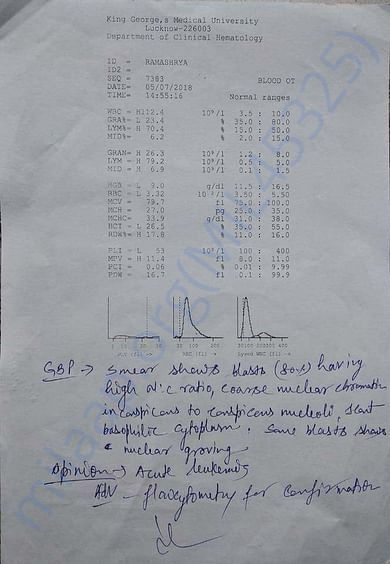 King George,s Medical University
Lucknow-226003
Department of Clinical Hematology
ID = RAMASHRYA
ID2 =
SEQ = 7383 BLOOD OT
DATE= 05/07/2018
TIME= 14:55:16 Normal ranges
WBC = H112.4 10⁹/l 3.5 : 10.0
GRA%= L 23.4 % 35.0 : 80.0
LYM%= H 70.4 % 15.0 : 50.0
MID%= 6.2 % 2.0 : 15.0
GRAN= H 26.3 10⁹/l 1.2 : 8.0
LYM = H 79.2 10⁹/l 0.5 : 5.0
MID = H 6.9 10⁹/l 0.1 : 1.5
HGB = L 9.0 g/dl 11.5 : 16.5
RBC = L 3.32 3.50 : 5.50
MCV = 79.7 fl 75.0 : 100.0
MCH = 27.0 pg 25.0 : 35.0
MCHC= 33.9 g/dl 31.0 : 38.0
HCT = L 26.5 % 35.0 : 55.0
RDW%= H 17.8 % 11.0 : 16.0
PLT = L 53 10⁹/l 100 : 400
MPV = H 11.4 fl 8.0 : 11.0
PCT = 0.06 % 0.01 : 9.99
PDW = 16.7 fl 0.1 : 99.9
PLT (fl) -> RBC (fl) -> Lysed WBC (fl) ->
GBP → Smear shows blasts (80%) having
high N:C ratio, coarse nuclear chromatin
inconspicous to conspicous nucleoli, scant
basophilic cytoplasm. Some blasts shows
nuclear groving
Opinion → Acute leukemia
ADV - flowcytometry for confirmation